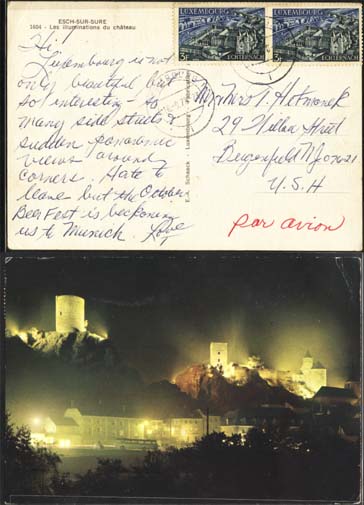 ESCH-SUR-SURE
1604 - Les illuminations du château
Hi!
Luxembourg is not
only beautiful but
so interesting - so
many side streets &
sudden panoramic
views around
corners. Hate to
leave but the October
Beer Fest is beckoning
us to Munich. Love
LUXEMBOURG
3F ECHTERNACH
LUXEMBOURG
3F ECHTERNACH
Mr Mrs
29 Street
Bergenfield NJ 07621
U.S.A
par avion
E.A. Schaack - Luxembourg